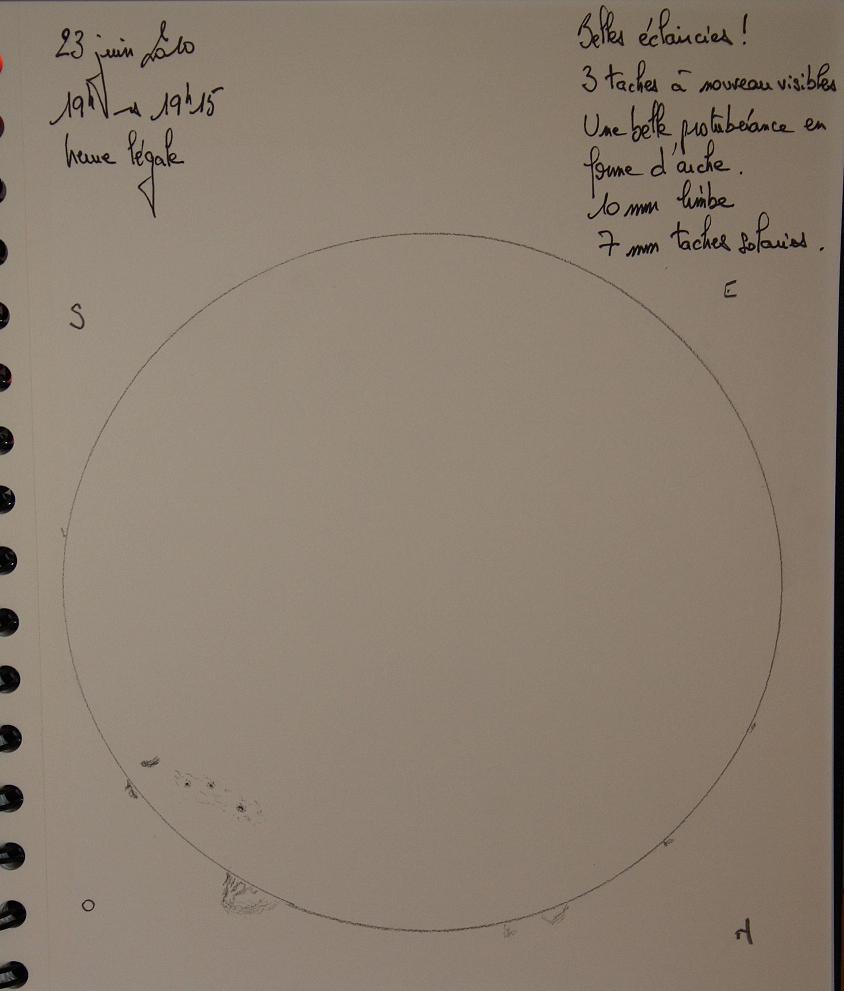 23 juin 2010
19h → 19h15
heure légale
Belles éclaircies !
3 taches à nouveau visibles
Une belle protubérance en
forme d'arche.
10 mm limbe
7 mm taches solaires.
S
E
O
N